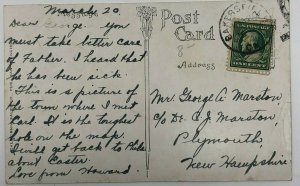 March 20.
Dear George. You
must take better care
of Father. I heard that
he has been sick.
This is a picture of
the town where I met
Carl. It is the toughest
hole on the map.
I will get back to
about Easter.
Love from Howard.
Post Card
Address
Mr. George A. Marston
c/o Dr. C. J. Marston,
Plymouth,
New Hampshire
ONE CENT